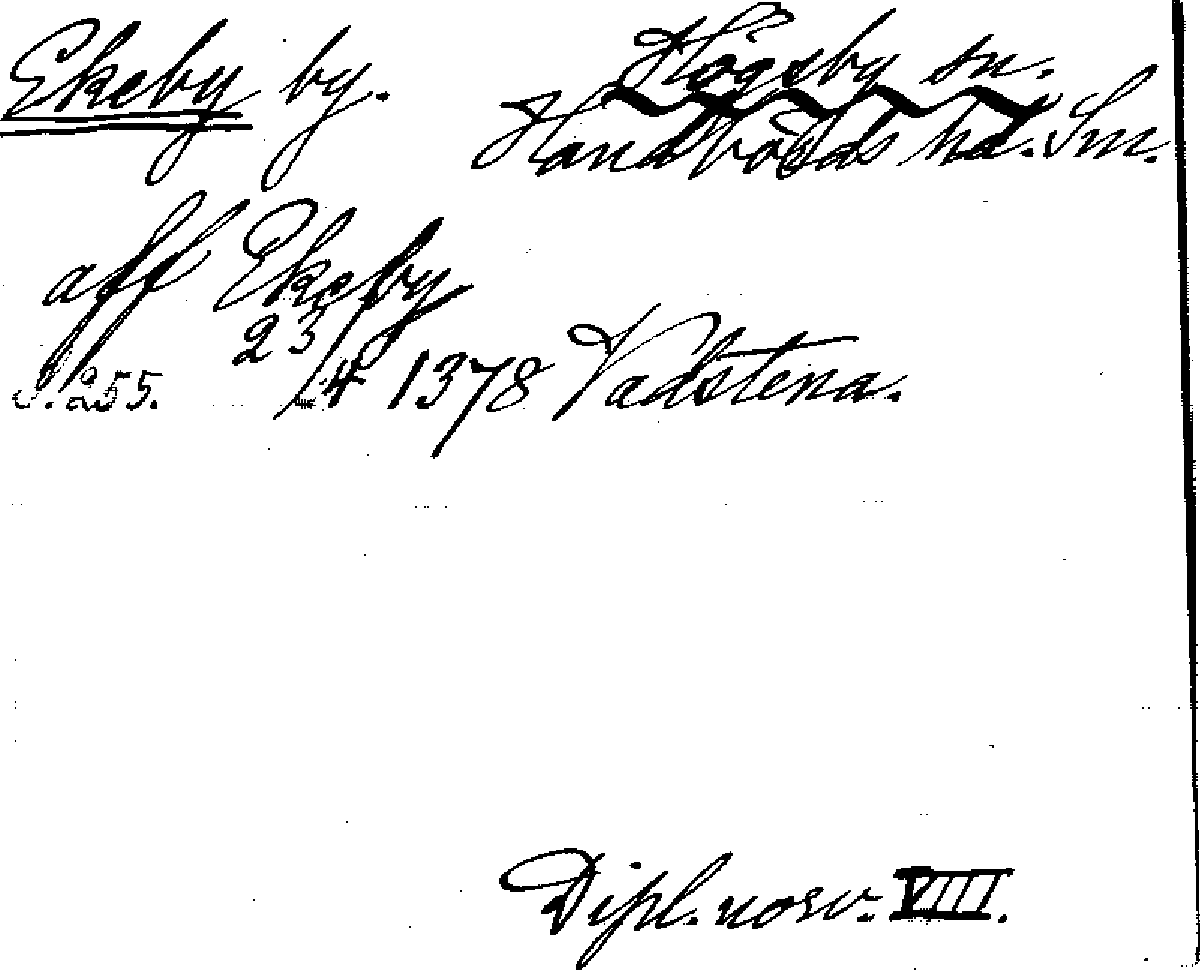 Ekeby by. Högsby sn.
Handbörds hd. Sm.
aff Ekeby
s. 255. 23/4 1378 Vadstena.
Dipl. norv. VIII.